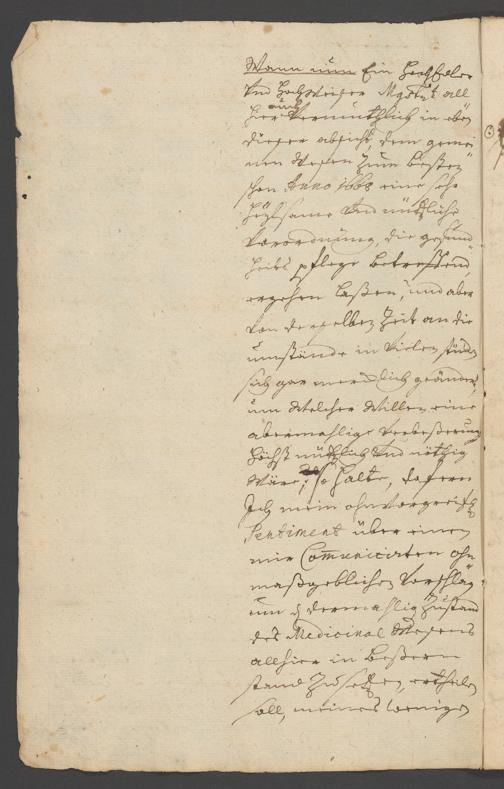 Wann nun Ein HochEdler
und Hochweiser Magist: all
hier auch vermuthlich in eben
dieser absicht, dem gemei
nen Wesen zum besten
schon Anno 1668 eine sehr
heylsame und nützliche
Verordnung, die gesund
heits pflege betreffend,
ergehen laßen, und aber
von derselben Zeit an die
umstände in vielen stücken
sich gar mercklich geändert,
um welcher Willen eine
abermahlige verbeßerung
höchst nützlich und nöthig
wäre; so halte, dafern
Ich mein ohnvorgreiffl.
Sentiment über einen
mir Communicirten ohn
maßgeblichen Vorschlag
um d. dermahlig Zustand
des Medicinal Wesens
allhier in beßern
stand zu setzen, ertheilen
soll, meines wenigen